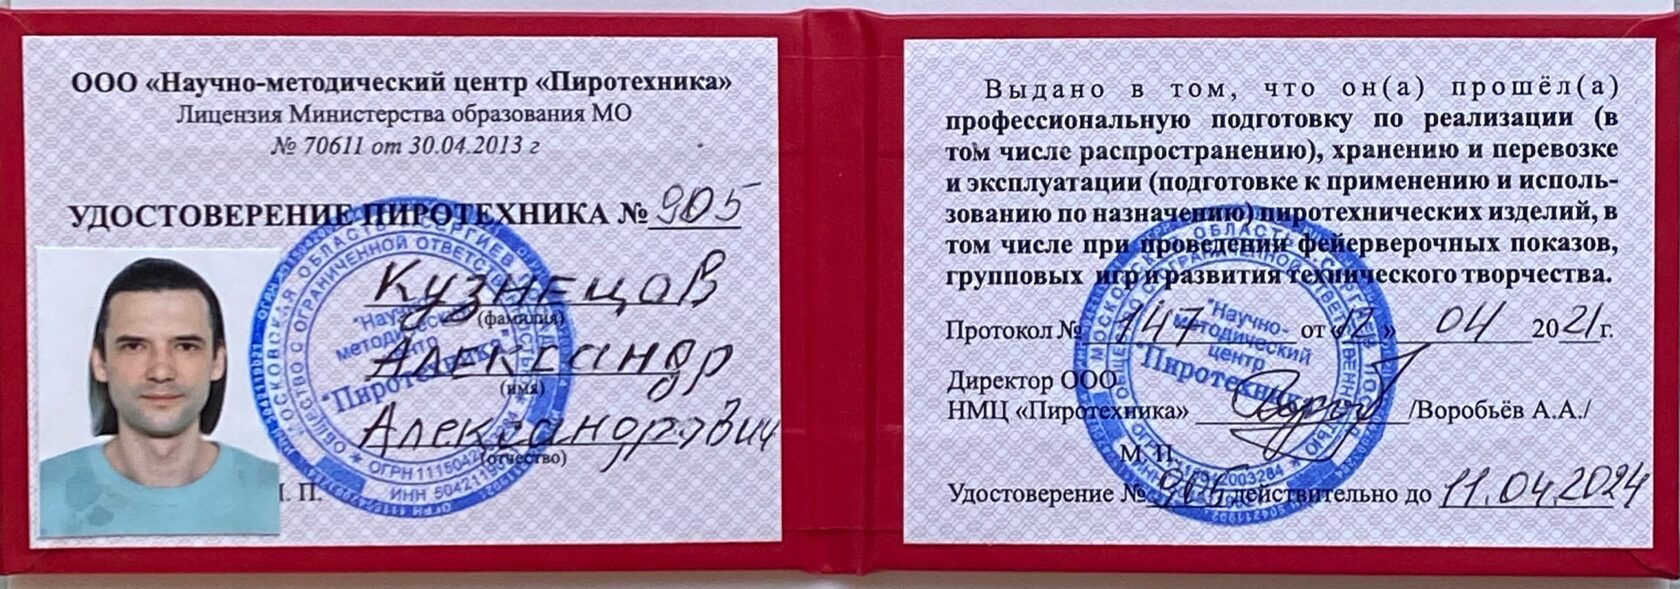 ООО «Научно-методический центр «Пиротехника»
Лицензия Министерства образования МО
№ 70611 от 30.04.2013 г
УДОСТОВЕРЕНИЕ ПИРОТЕХНИКА № 905
Кузнецов
(фамилия)
Александр
(имя)
Александрович
(отчество)
М. П.
МОСКОВСКАЯ ОБЛАСТЬ
ОБЩЕСТВО С ОГРАНИЧЕННОЙ ОТВЕТСТВЕННОСТЬЮ
"Научно-
методический
центр
"Пиротехника"
Выдано в том, что он(а) прошёл(а)
профессиональную подготовку по реализации (в
том числе распространению), хранению и перевозке
и эксплуатации (подготовке к применению и исполь-
зованию по назначению) пиротехнических изделий, в
том числе при проведении фейерверочных показов,
групповых игр и развития технического творчества.
Протокол № 147 от «12» 04 2021г.
Директор ООО
НМЦ «Пиротехника» /Воробьёв А.А./
М. П.
Удостоверение № 905 действительно до 11.04.2024
"Научно-
методический
центр
"Пиротехника"